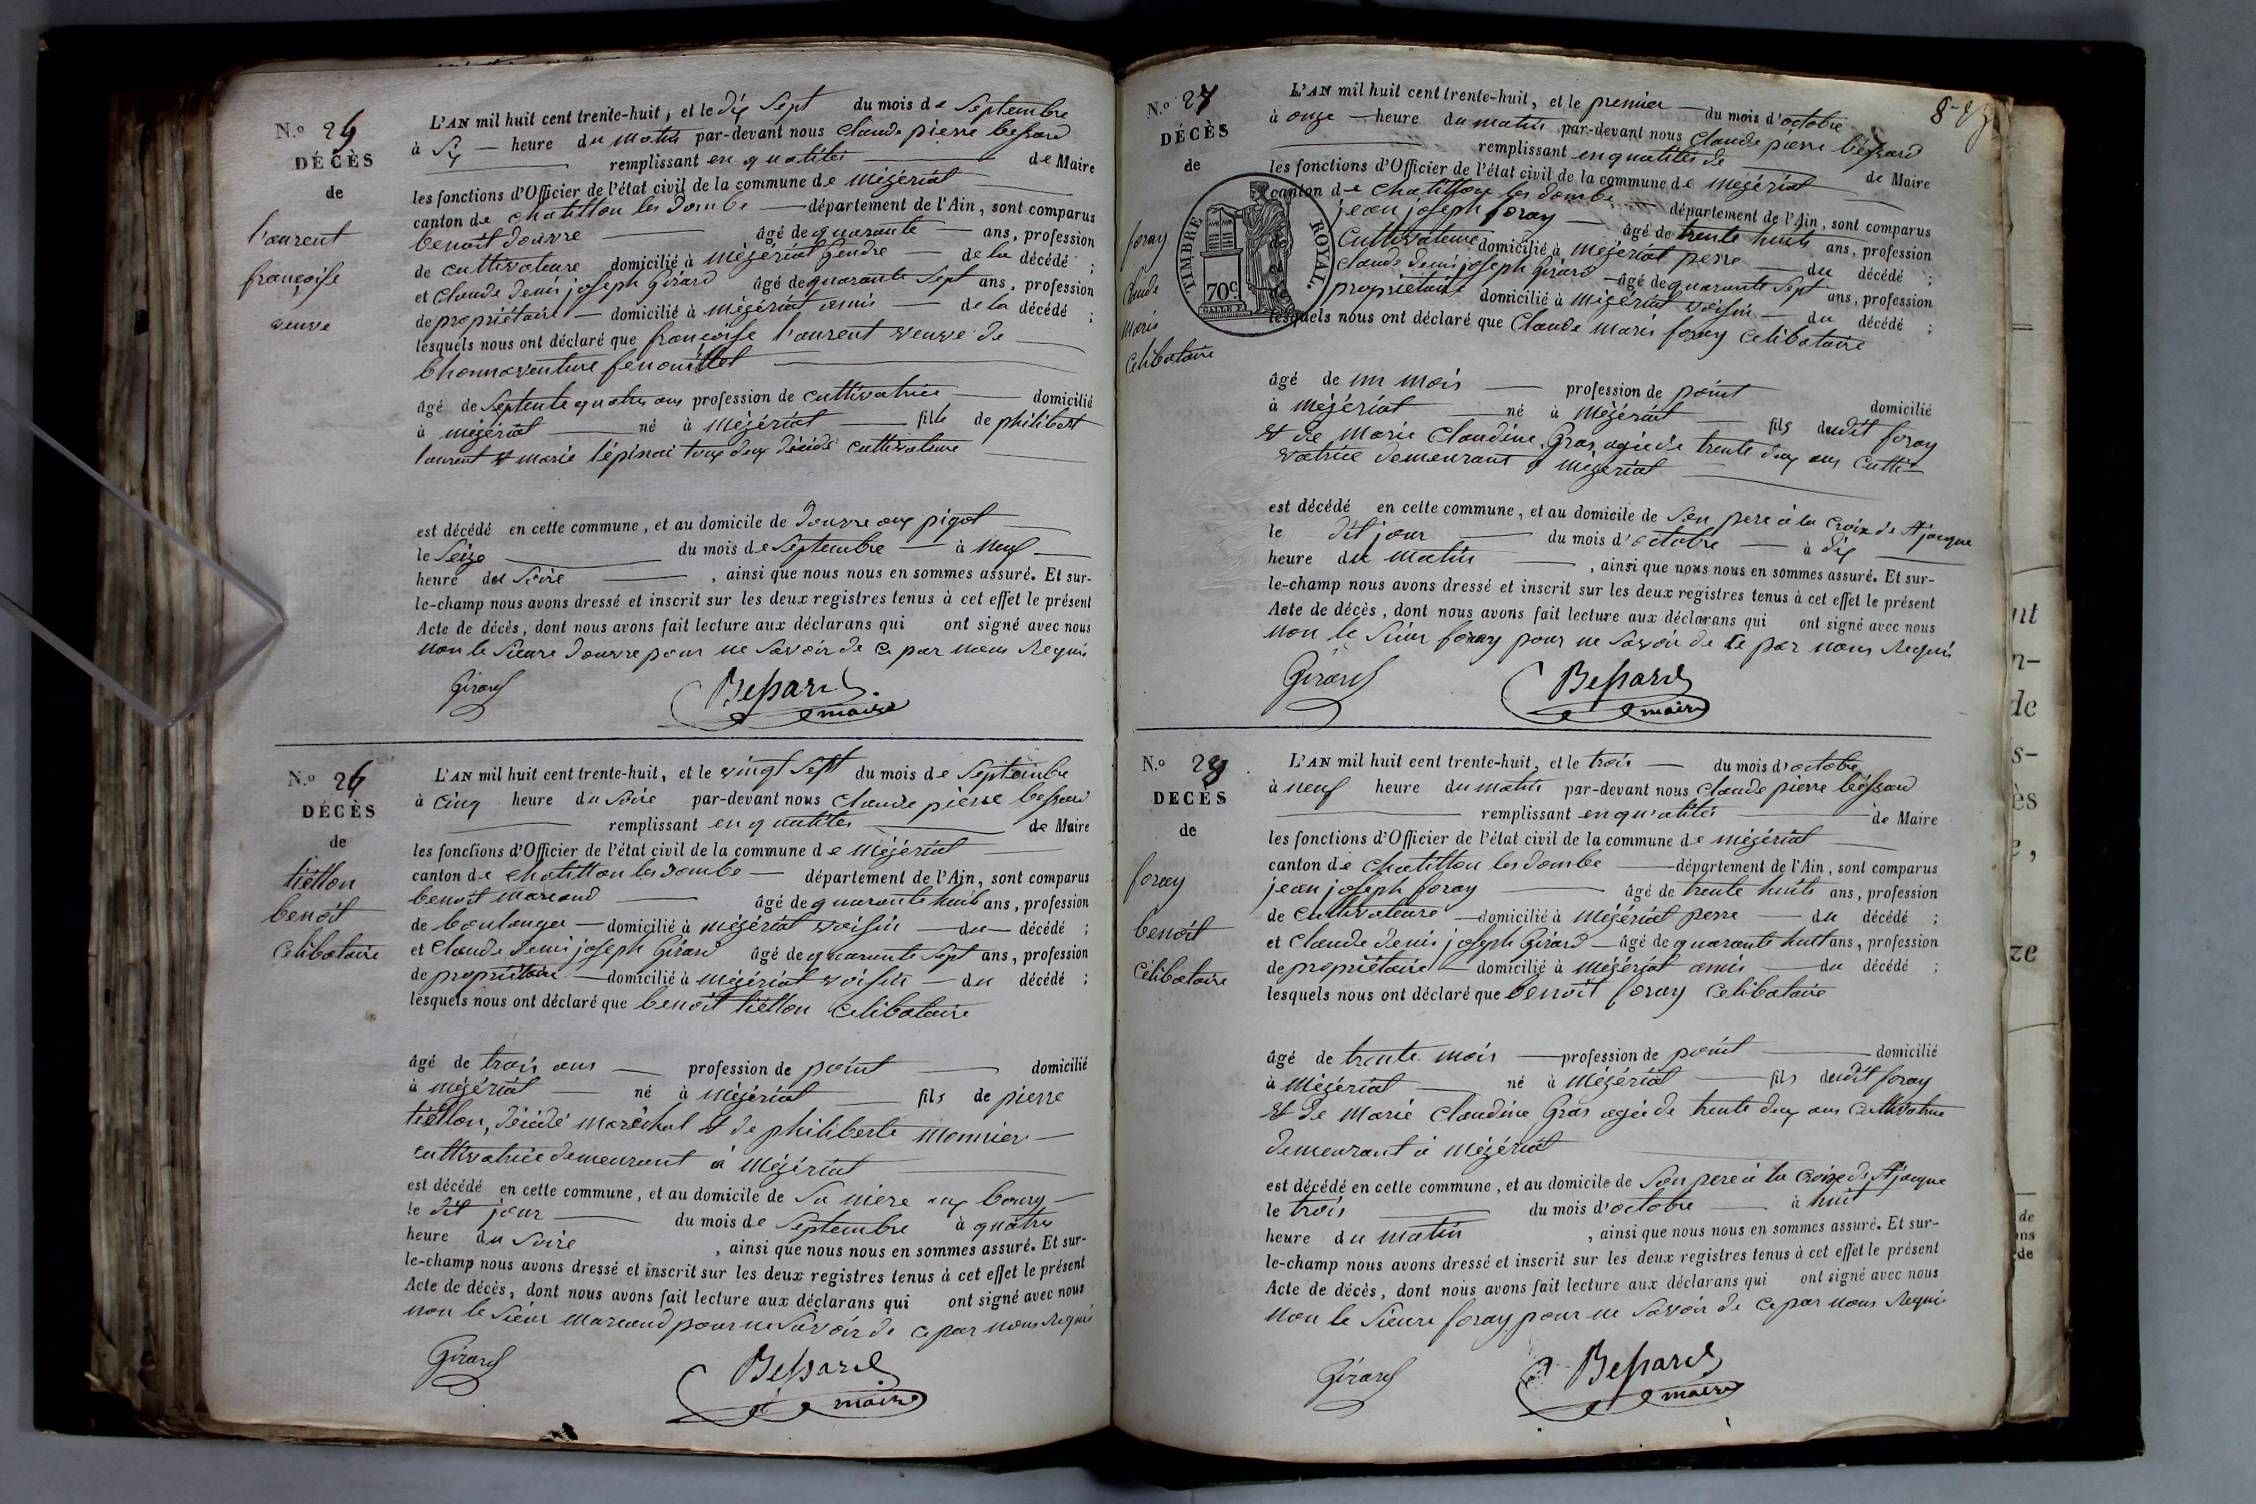 N.o 25
DÉCÈS
de
l'aurent
françoise
veuve
L'AN mil huit cent trente-huit, et le dix sept du mois de Septembre
à Six heure du matin par-devant nous Claude pierre bessard
remplissant en qualités de Maire
les fonctions d'Officier de l'état civil de la commune de mézériat
canton de chatillon les dombe département de l'Ain, sont comparus
benoit douvre âgé de quarante ans, profession
de cultivateure domicilié à mézériat gendre de la décédé ;
et Claude denis joseph Girard âgé de quarante Sept ans, profession
de propriétaire domicilié à mézériat amis de la décédé ;
lesquels nous ont déclaré que françoise l'aurent veuve de
bhonnaventure fenouillet
âgé de Septente quatre ans profession de cultivatrice domicilié
à mézériat né à mézériat fille de philibert
laurent et marie l'épinai toux deux décédé cultivateure
est décédé en cette commune, et au domicile de douvre aux pigot
le Seize du mois de Septembre à neuf
heure du Soire , ainsi que nous nous en sommes assuré. Et sur-
le-champ nous avons dressé et inscrit sur les deux registres tenus à cet effet le présent
Acte de décès, dont nous avons fait lecture aux déclarans qui ont signé avec nous
non le Sieure douvre pour ne Savoir de ce par nous Requis
Girard Bessard
maire
N.o 26
DÉCÈS
de
tiéllon
benoit
Celibataire
L'AN mil huit cent trente-huit, et le vingt Sept du mois de Septembre
à Cinq heure du Soire par-devant nous Claude pierre bessard
remplissant en qualités de Maire
les fonctions d'Officier de l'état civil de la commune de mézériat
canton de chatillon les dombe département de l'Ain, sont comparus
benoit marcaud âgé de quarante huit ans, profession
de boulanger domicilié à mézériat voisin du décédé ;
et Claude denis joseph Girard âgé de quarante Sept ans, profession
de propriétaire domicilié à mézériat voisin du décédé ;
lesquels nous ont déclaré que benoit tiéllon Celibataire
âgé de trois ans profession de point domicilié
à mézériat né à mézériat fils de pierre
tiéllon, décédé maréchal et de philiberte monnier
cultivatrice demeurant à mézériat
est décédé en cette commune, et au domicile de Sa mère aux bourg
le dit jour du mois de Septembre à quatre
heure du Soire , ainsi que nous nous en sommes assuré. Et sur-
le-champ nous avons dressé et inscrit sur les deux registres tenus à cet effet le présent
Acte de décès, dont nous avons fait lecture aux déclarans qui ont signé avec nous
non le Sieur marcaud pour ne Savoir de ce par nous Requis
Girard Bessard
maire
N.o 27
DÉCÈS
de
foray
Claude
marie
Celibataire
TIMBRE ROYAL.
70c.
L'AN mil huit cent trente-huit, et le premier du mois d'octobre
à onze heure du matin par-devant nous Claude pierre béssard
remplissant en qualités de de Maire
les fonctions d'Officier de l'état civil de la commune de mézériat
canton de chatillon les dombe département de l'Ain, sont comparus
jean joseph foray âgé de trente huits ans, profession
Cultivateure domicilié à mézériat perre du décédé ;
Claude denis joseph Girard âgé de quarante Sept ans, profession
propriétaire domicilié à mézériat voisin du décédé ;
lesquels nous ont déclaré que Claude marie foray Celibataire
âgé de un mois profession de point domicilié
à mézériat né à mézériat fils dudit foray
et de Marie Claudine Gras agée de trente deux ans culti-
vatrice demeurant à mézériat
est décédé en cette commune, et au domicile de Son pere à la Croix de St jacque
le dit jour du mois d'octobre à dix
heure du matin , ainsi que nous nous en sommes assuré. Et sur-
le-champ nous avons dressé et inscrit sur les deux registres tenus à cet effet le présent
Acte de décès, dont nous avons fait lecture aux déclarans qui ont signé avec nous
non le Sieur foray pour ne Savoir de ce par nous Requis
Girard Bessard
maire
N.o 28
DECÈS
de
foray
benoit
Célibataire
L'AN mil huit cent trente-huit, et le trois du mois d'octobre
à neuf heure du matin par-devant nous Claude pierre béssard
remplissant en qualités de Maire
les fonctions d'Officier de l'état civil de la commune de mézériat
canton de chatillon les dombe département de l'Ain, sont comparus
jean joseph foray âgé de trente huits ans, profession
de Cultivateure domicilié à mézériat perre du décédé ;
et Claude denis joseph Girard âgé de quarante huit ans, profession
de propriétaire domicilié à mézériat amis du décédé ;
lesquels nous ont déclaré que benoit foray Celibataire
âgé de trente mois profession de point domicilié
à mézériat né à mézériat fils dudit foray
et de Marie Claudine Gras agée de trente deux ans Cultivatrice
demeurant à mézériat
est décédé en cette commune, et au domicile de Son pere à la Croix de St jacque
le trois du mois d'octobre à huit
heure du matin , ainsi que nous nous en sommes assuré. Et sur-
le-champ nous avons dressé et inscrit sur les deux registres tenus à cet effet le présent
Acte de décès, dont nous avons fait lecture aux déclarans qui ont signé avec nous
non le Sieure foray pour ne Savoir de ce par nous Requis
Girard Bessard
maire